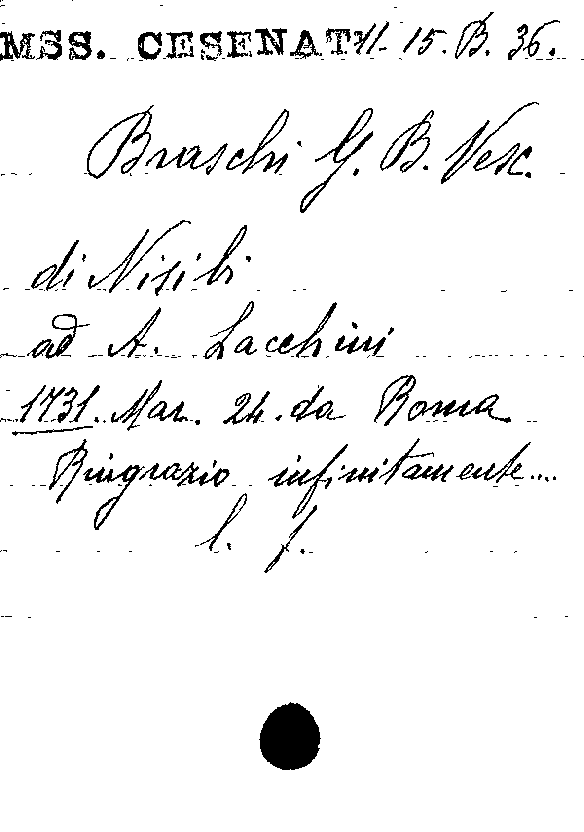 MSS. CESENATI 11. 15. B. 36.
Braschi G. B. Vesc.
di Nisibi
ad A. Lacchini
1731. Mar. 24. da Roma
Ringrazio infinitamente....
l. f.